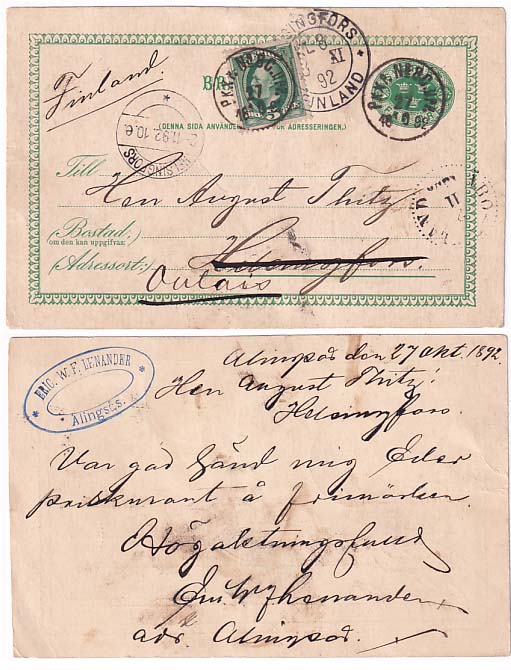 Finland.
BR
PKXP. Nº 
27
10
5
HELSINGFORS
8
XI
92
FINLAND
27
10 92
(DENNA SIDA ANVÄNDES FÖR ADRESSERINGEN.)
11.92 10.6
HELSINGFORS
Till
Herr August Thitz
(Bostad:)
om den kan uppgifvas:
(Adressort:) Helsingfors.
Oulais
ERIC. W. F. LENANDER
Alingsås.
Alingsås den 27 Okt. 1892.
Herr August Thitz!
Helsingfors.
Var god Sänd mig Eder
priskurant å frimärken
Högaktningsfullt
Eric W F Lenander
adr. Alingsås.